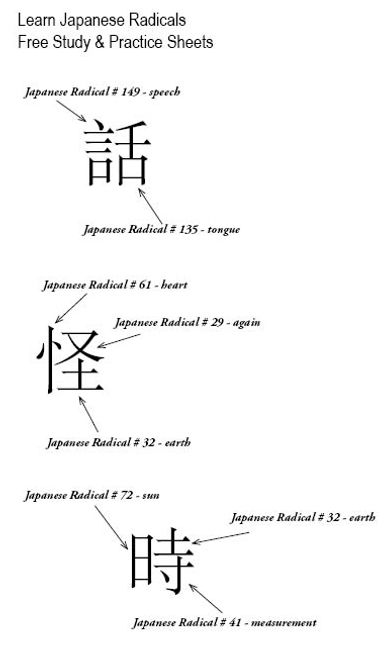 Learn Japanese Radicals
Free Study & Practice Sheets
Japanese Radical # 149 - speech
話
Japanese Radical # 135 - tongue
Japanese Radical # 61 - heart
Japanese Radical # 29 - again
怪
Japanese Radical # 32 - earth
Japanese Radical # 72 - sun
Japanese Radical # 32 - earth
時
Japanese Radical # 41 - measurement